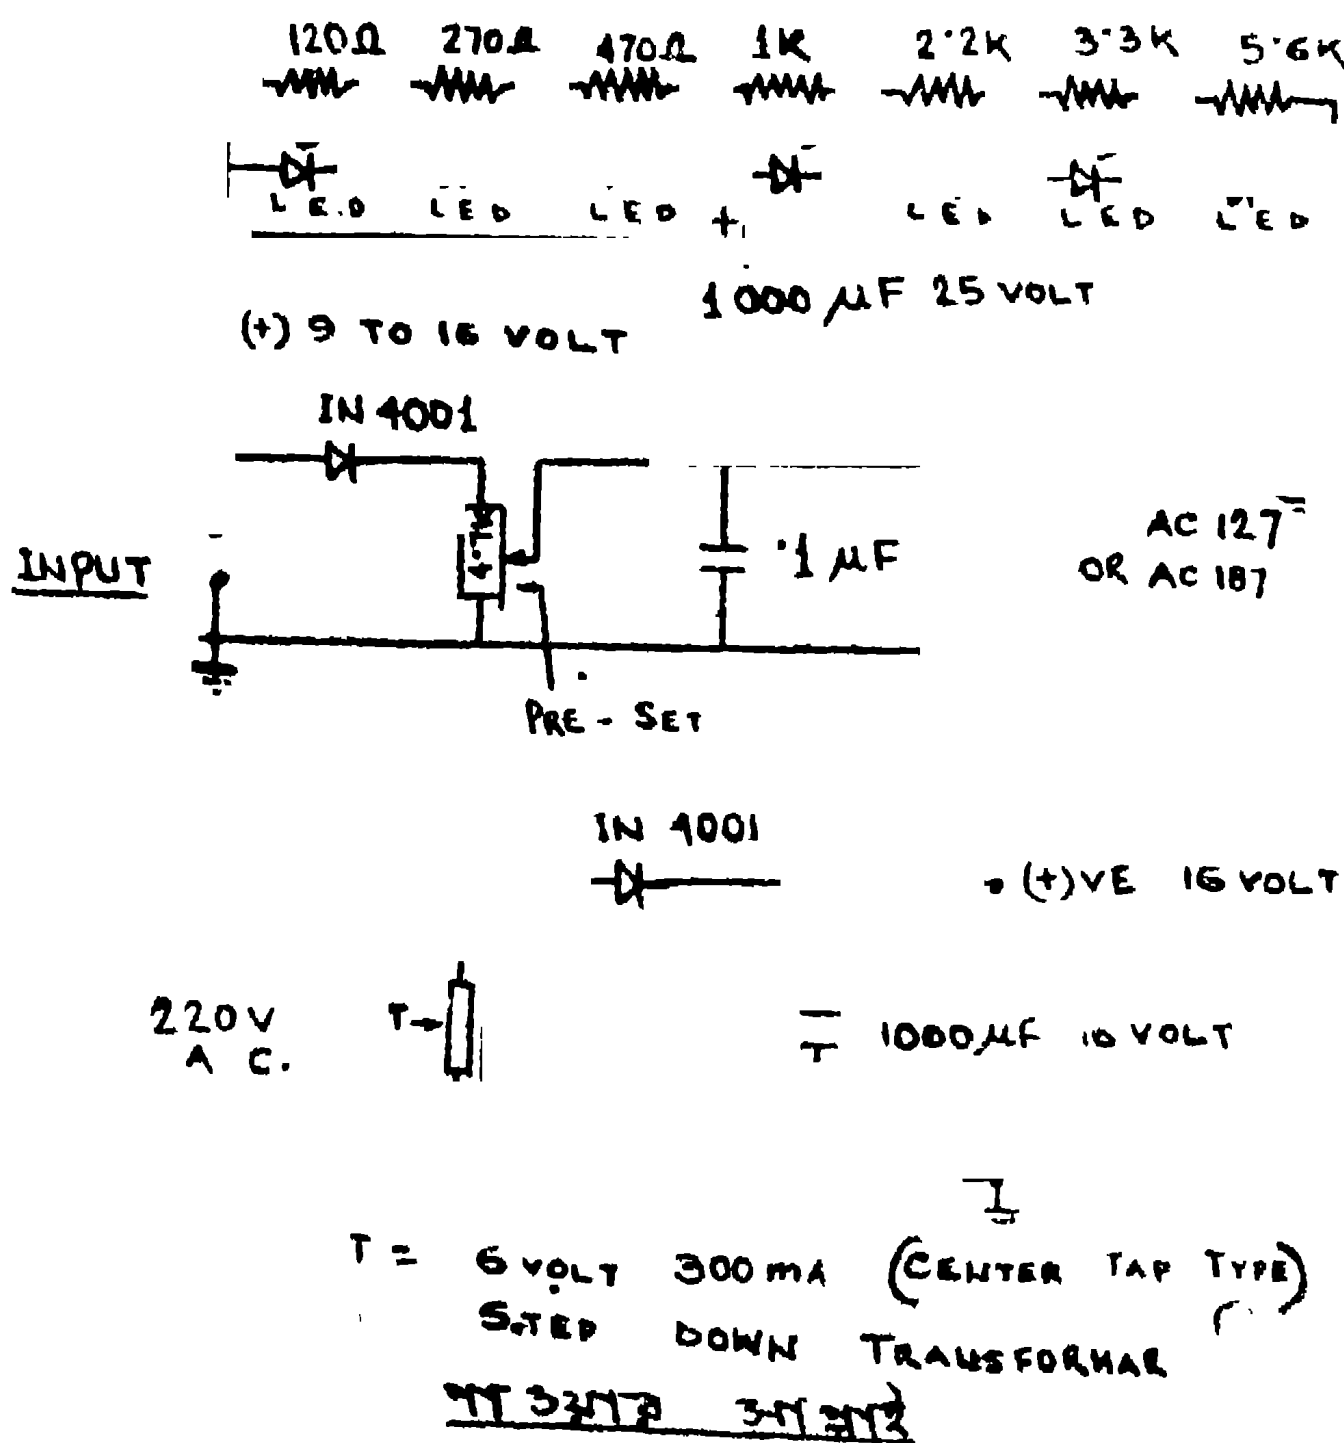 120Ω 270Ω 470Ω 1K 2·2K 3·3K 5·6K
LED LED LED + LED LED LED
1000 μF 25 VOLT
(+) 9 TO 16 VOLT
IN 4001
INPUT
·1 μF
AC 127
OR AC 187
PRE - SET
IN 4001
(+)VE 16 VOLT
220V
A C.
T
1000μF 10 VOLT
T = 6 VOLT 300 mA (CENTER TAP TYPE)
STEP DOWN TRANSFORMAR